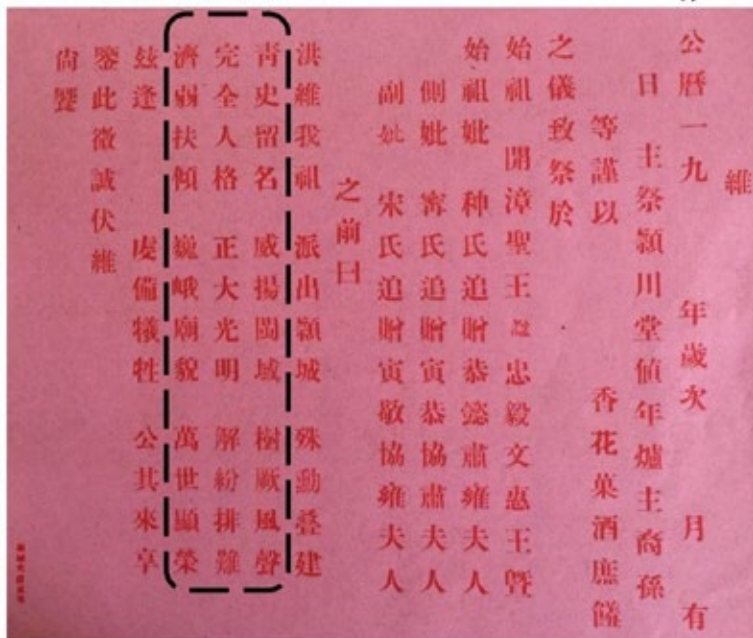 維
公曆一九 年歲次 月 有
日 主祭潁川堂值年爐主裔孫
等謹以 香花菓酒庶饈
之儀致祭於
始祖 開漳聖王 忠毅文惠王曁
始祖妣 种氏追贈恭懿肅雍夫人
側妣 甯氏追贈寅恭協肅夫人
副妣 宋氏追贈寅敬協雍夫人
之前曰
洪維我祖 派出潁城 殊勳叠建
靑史留名 威揚閩域 樹厥風聲
完全人格 正大光明 解紛排難
濟弱扶傾 巍峨廟貌 萬世顯榮
玆逢 虔備犧牲 公其來享
鑒此微誠伏維
尙饗